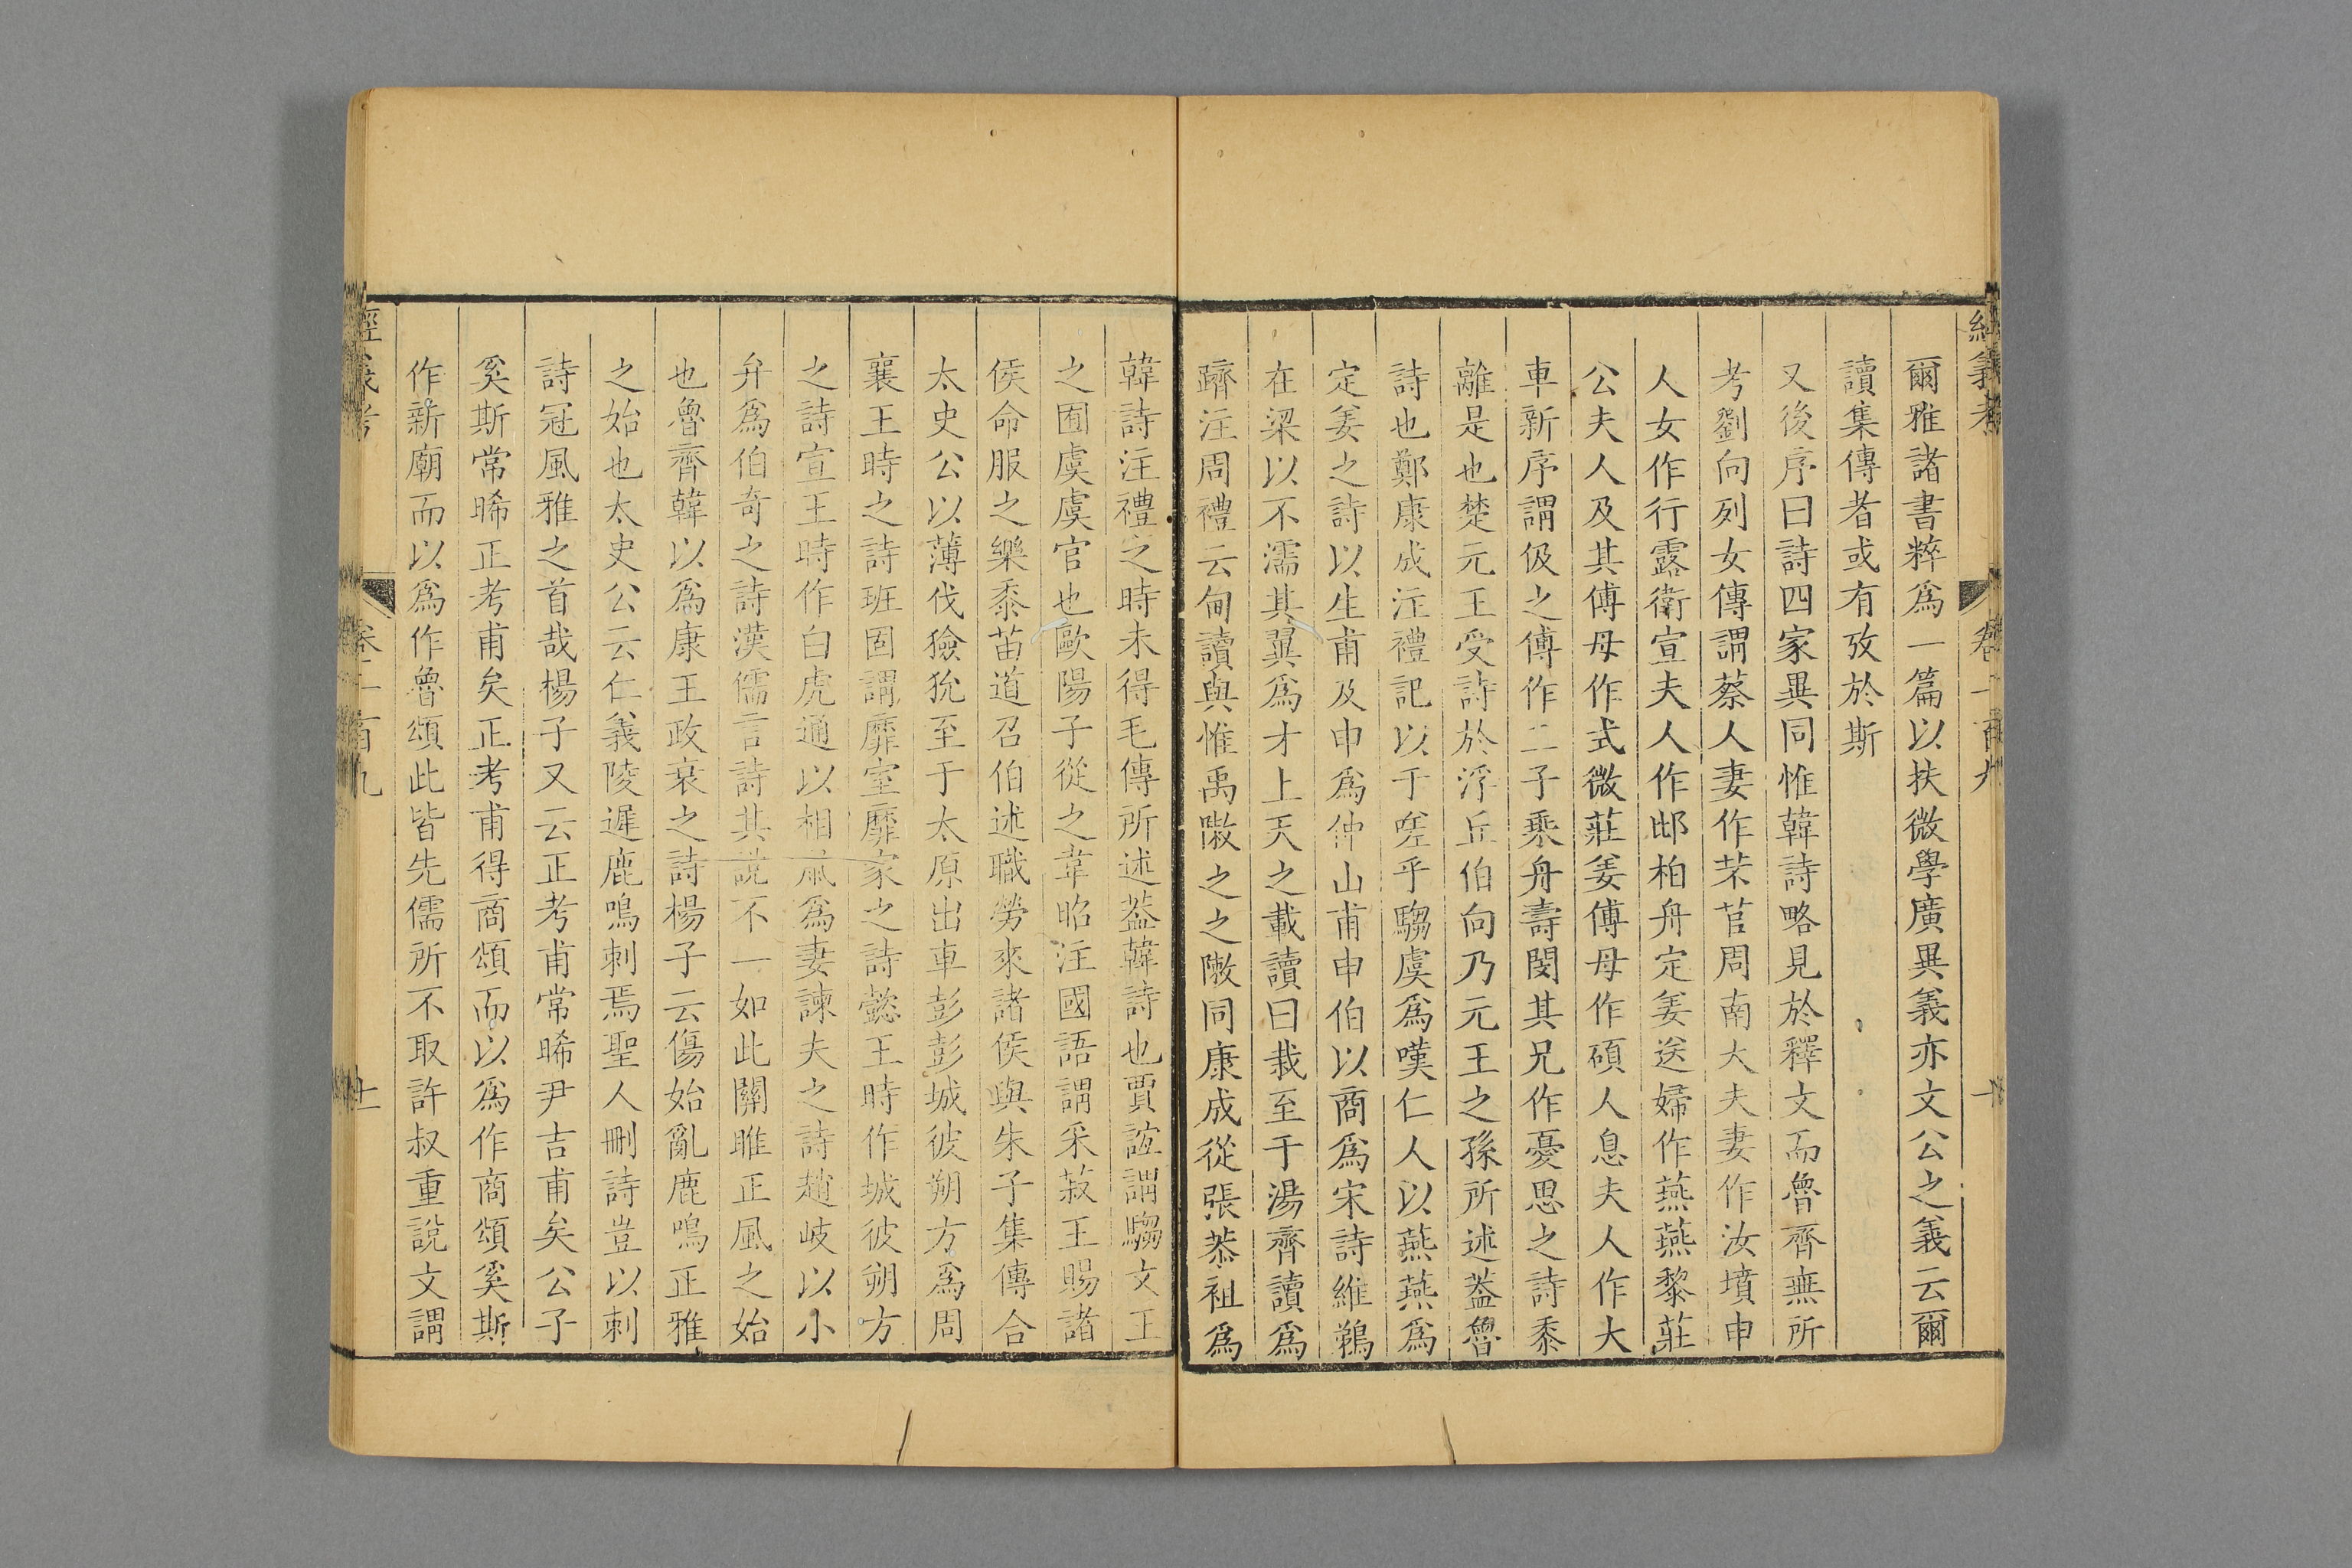 經義考 卷一百九 十
爾雅諸書粹爲一篇以扶微學廣異義亦文公之義云爾
讀集傳者或有攷於斯
又後序曰詩四家異同惟韓詩略見於釋文而魯齊無所
考劉向列女傳謂蔡人妻作芣苢周南大夫妻作汝墳申
人女作行露衛宣夫人作邶柏舟定姜送婦作燕燕黎莊
公夫人及其傅母作式微莊姜傅母作碩人息夫人作大
車新序謂伋之傅作二子乘舟壽閔其兄作憂思之詩黍
離是也楚元王受詩於浮丘伯向乃元王之孫所述葢魯
詩也鄭康成注禮記以于嗟乎騶虞爲嘆仁人以燕燕爲
定姜之詩以生甫及申爲仲山甫申伯以商爲宋詩維鵜
在梁以不濡其翼爲才上天之載讀曰栽至于湯齊讀爲
躋注周禮云甸讀與惟禹敶之之敶同康成從張恭祖爲
韓詩注禮之時未得毛傳所述葢韓詩也賈誼謂騶文王
之囿虞虞官也歐陽子從之韋昭注國語謂采菽王賜諸
侯命服之樂黍苗道召伯述職勞來諸侯與朱子集傳合
太史公以薄伐獫狁至于太原出車彭彭城彼朔方爲周
襄王時之詩班固謂靡室靡家之詩懿王時作城彼朔方
之詩宣王時作白虎通以相鼠爲妻諫夫之詩趙岐以小
弁爲伯奇之詩漢儒言詩其說不一如此關雎正風之始
也魯齊韓以爲康王政衰之詩楊子云傷始亂鹿鳴正雅
之始也太史公云仁義陵遲鹿鳴刺焉聖人刪詩豈以刺
詩冠風雅之首哉楊子又云正考甫常睎尹吉甫矣公子
奚斯常睎正考甫矣正考甫得商頌而以爲作商頌奚斯
作新廟而以爲作魯頌此皆先儒所不取許叔重說文謂
經義考 卷一百九 十一